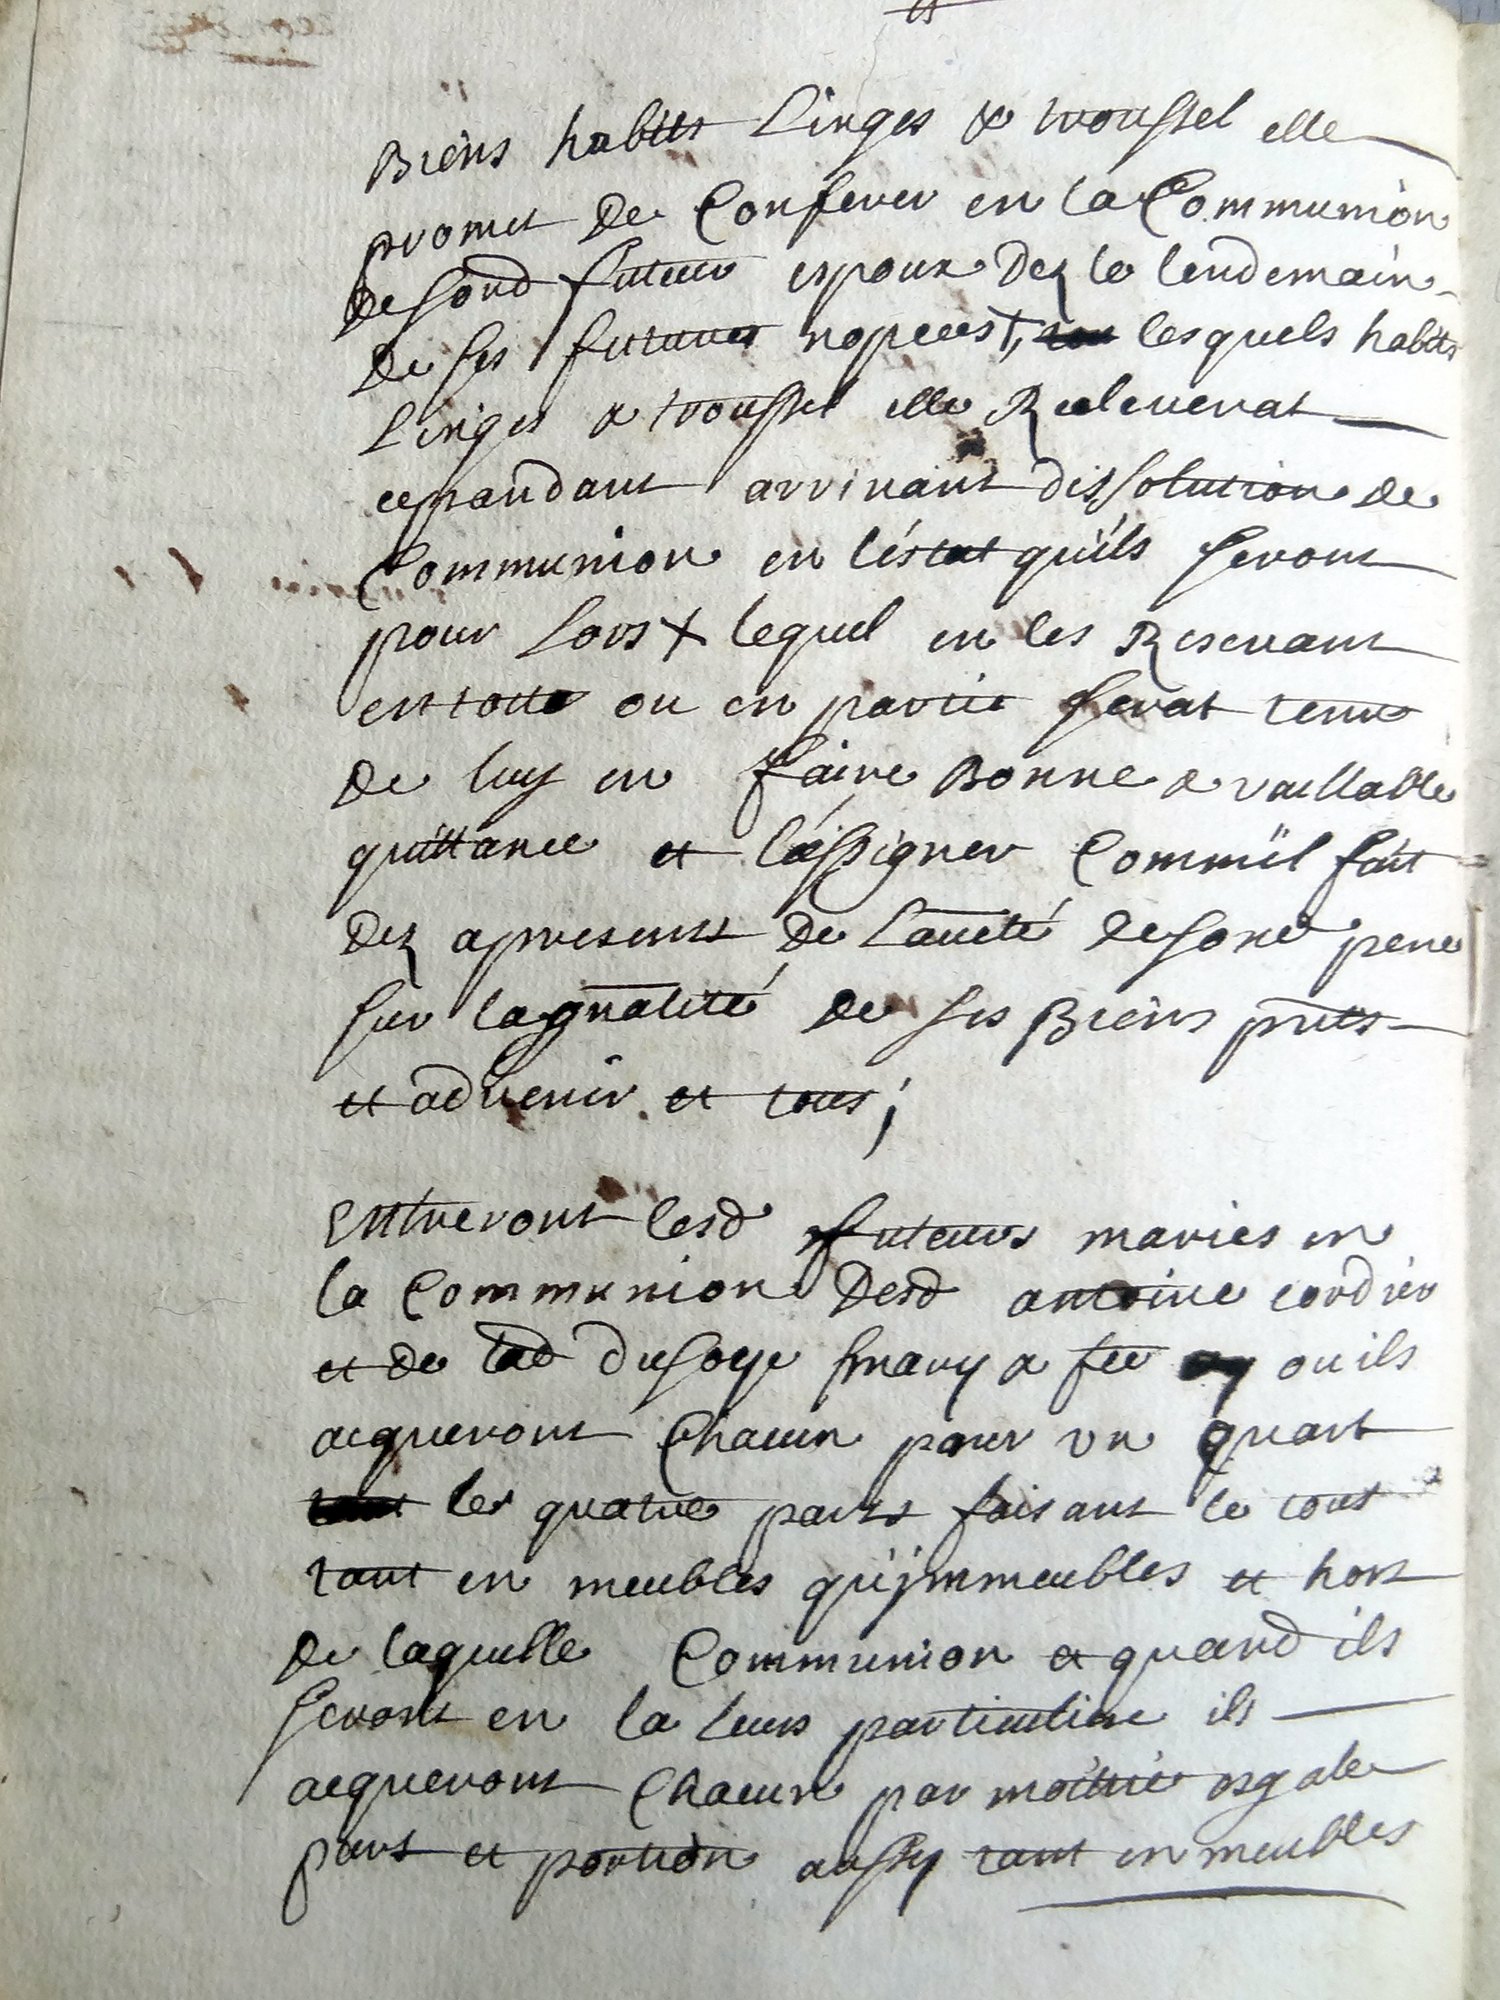 Biens habitts Linges & troussel elle
promet de Conferer en la Communion
desond futeur espoux dez le lendemain
de ses futures nopces +, lesquels habitts
Linges & troussel elle Relevenat
cepandant arrivant dissolution de
Communion en l'éstat qu'ils seront
pour Lors + lequel en les Resevant
en totte ou en partie serat tenu
de luy en faire Bonne & vaillable
quittance et l'assigner Comm'il fait
dez apresent de L'autté desond pere
sur lagnalité de ses Biens pntts
et advenir et tous ;
Entreront lesd futeurs maries en
la Communion Desd antoine cordier
et de lad dusoye smary a feu ou ils
acqueront Chacun pour un quart
les quatre parts faisant le tout
tant en meubles qu'jmmeubles et hors
de laquelle Communion et quand ils
seront en la leurs particuliere ils
acqueront Chacun par moittié esgale
part et portion aussy tant en meubles